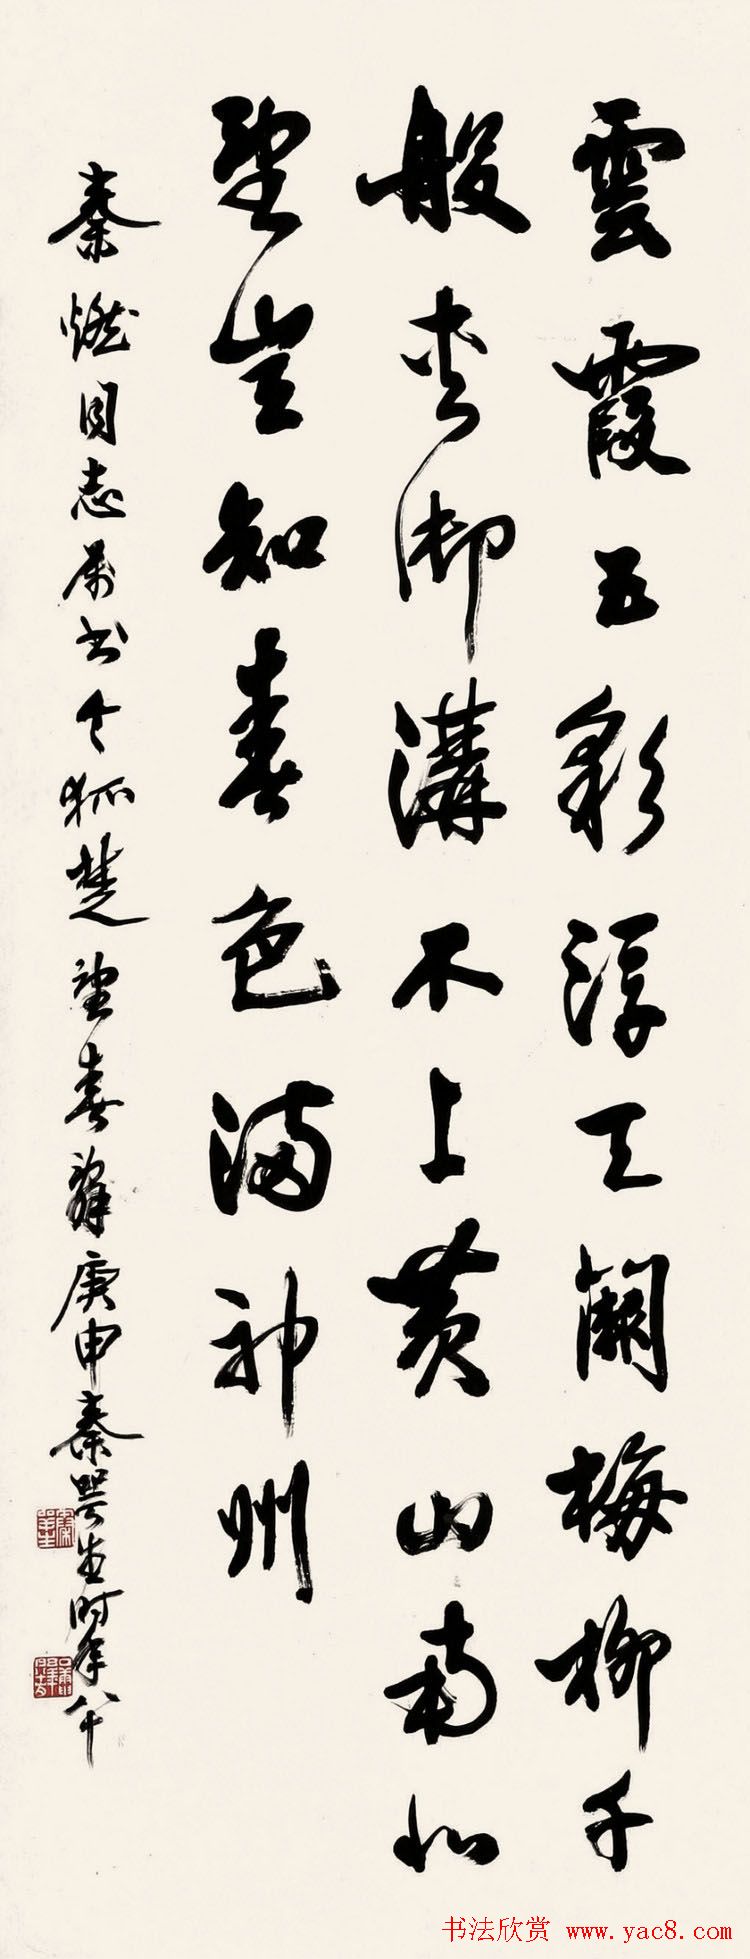 雲霞五彩浮天闕梅柳千
般夾御溝不上黄山南北
望豈知春色滿神州
秦燃同志属书令狐楚望春辭庚申秦咢生时年八十
书法欣赏 www.yac8.com